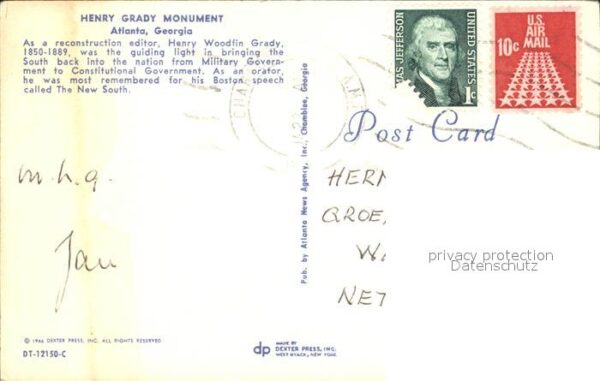 HENRY GRADY MONUMENT
Atlanta, Georgia
As a reconstruction editor, Henry Woodfin Grady,
1850-1889, was the guiding light in bringing the
South back into the nation from Military Govern-
ment to Constitutional Government. As an orator,
he was most remembered for his Boston speech
called The New South.
m.h.g.
Jan
© 1966 DEXTER PRESS, INC. ALL RIGHTS RESERVED
DT-12150-C
Pub. by Atlanta News Agency, Inc., Chamblee, Georgia
dp
MADE BY
DEXTER PRESS, INC.
WEST NYACK, NEW YORK
AS JEFFERSON
UNITED STATES
1c
U.S.
AIR
MAIL
10c
Post Card
HER
GROE
W
NET
privacy protection
Datenschutz